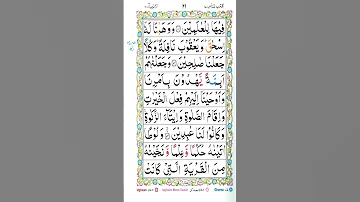 فِيْهَا لِلْعٰلَمِيْنَ ۞ وَوَهَبْنَا لَهٗۤ
اِسْحٰقَ ؕ وَيَعْقُوْبَ نَافِلَةً ؕ وَكُلًّا
جَعَلْنَا صٰلِحِيْنَ ۞ وَجَعَلْنٰهُمْ
اَئِمَّةً يَّهْدُوْنَ بِاَمْرِنَا
وَاَوْحَيْنَاۤ اِلَيْهِمْ فِعْلَ الْخَيْرٰتِ
وَاِقَامَ الصَّلٰوةِ وَاِيْتَآءَ الزَّكٰوةِ ۚ
وَكَانُوْا لَنَا عٰبِدِيْنَ ۞ وَلُوْطًا
اٰتَيْنٰهُ حُكْمًا وَّعِلْمًا وَّنَجَّيْنٰهُ
مِنَ الْقَرْيَةِ الَّتِيْ كَانَتْ